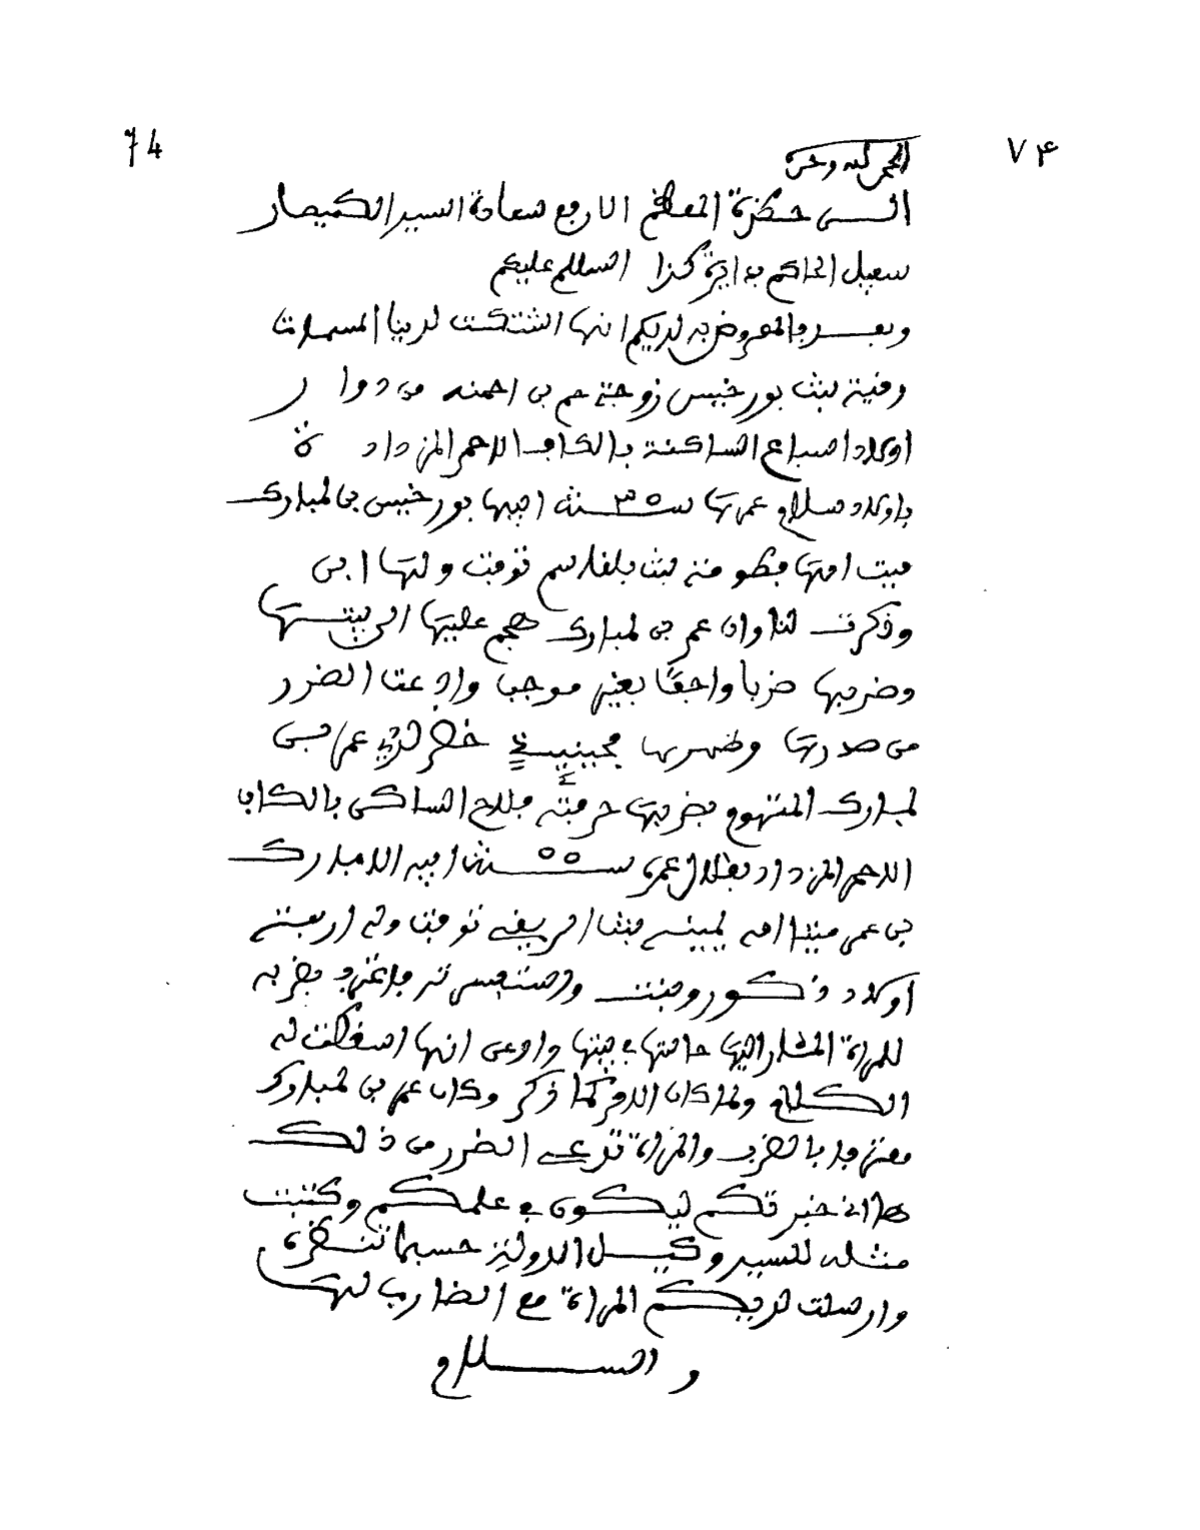 74
٧۴
الحمد لله وحده
الى حضرة المعظم الارفع سعادة السيد الكميصار
سعيل الحاكم بدايرة كذا السلام عليكم
وبعد فالمعروض به لديكم انها اشتكت لدينا المسمات
رقية بنت بورخيس زوجة حم بن احمنه من دوار
اولاد اصباع الساكنة بالكاف الاحمر المزدادة
باولاد سلام عمرتها سنة ٣٥ ابيها بورخيس بن لمبارك
ميت امها فطومنه بنت بلقاسم توفت ولها ابن
وذكرت لنا وان عمر بن لمبارك هجم عليها الى بيتها
وضربها ضربا واجعًا بغير موجب وادعت الضرر
من صدرتها وظهرها فحينيذ حضر لدي عمر بن
لمبارك المتهوم بضربها حرفته فلاح الساكن بالكاف
الاحمر المزداد بفلال عمره سنة ٥٥ ابيه الامبارك
بن عمر ميت امه لميسه بنت الريفي توفت وله اربعة
اولاد ذكور وبنت واستفسرته فاعترف بضربه
للمراة المشار اليها حالتها في بيتها وادعى انها اسفكت له
الكلام ولما كان الامر كما ذكر وكان عمر بن لمبارك
معترفا بالضرب والمراة تدعي الضرر من ذلك
هاانى خبرتكم ليكون في علمكم وكتبت
مثله للسيد وكيل الدولة حسبما تنظره
وارسلت لديكم المراة مع الضارب لها
والسلام